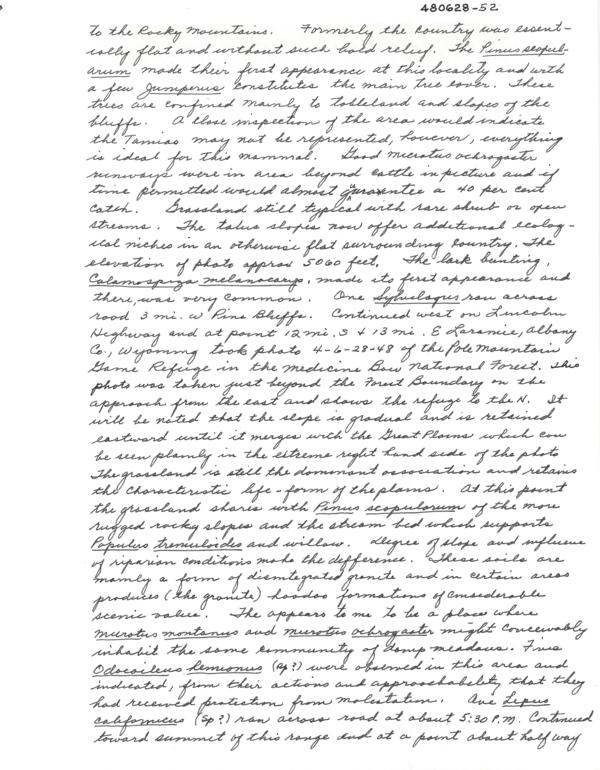 480628-52
to the Rocky Mountains. Formerly the country was essent-
ially flat and without such bold relief. The Pinus scopul-
arum made their first appearance at this locality and with
a few Juniperus constitutes the main tree cover. These
trees are confined mainly to tableland and slopes of the
bluffs. A close inspection of the area would indicate
the Tamias may not be represented, however, everything
is ideal for this mammal. Good microtus ochrogaster
runways were in area beyond cattle in picture and if
time permitted would almost guarantee a 40 per cent
catch. Grassland still typical with rare shrub or open
streams. The talus slopes now offer additional ecolog-
ical niches in an otherwise flat surrounding country. The
elevation of photo approx 5060 feet. The lark bunting,
Calamospiza melanocarys, made its first appearance and
there, was very common. One Sylvilagus ran across
road 3 mi. W Pine Bluffs. Continued west on Lincoln
Highway and at point 12 mi. S + 13 mi. E Laramie, Albany
Co., Wyoming took photo 4-6-28-48 of the Pole Mountain
Game Refuge in the Medicine Bow National Forest. This
photo was taken just beyond the Forest Boundary on the
approach from the east and shows the refuge to the N. It
will be noted that the slope is gradual and is retained
eastward until it merges with the Great Plains which can
be seen plainly in the extreme right hand side of the photo
The grassland is still the dominant association and retains
the characteristic life-form of the plains. At this point
the grassland shares with Pinus scopulorum of the more
rugged rocky slopes and the stream bed which supports
Populus tremuloides and willow. Degree of slope and influence
of riparian conditions make the difference. These soils are
mainly a form of disintegrated granite and in certain areas
produces (the granite) hoodoo formations of considerable
scenic value. The appears to me to be a place where
Microtus montanus and microtus ochrogaster might conceivably
inhabit the same community of damp meadows. Five
Odocoileus hemionus (sp?) were observed in this area and
indicated, from their actions and approachability that they
had received protection from molestation. One Lepus
californicus (sp?) ran across road at about 5:30 P.M. Continued
toward summit of this range and at a point about half way